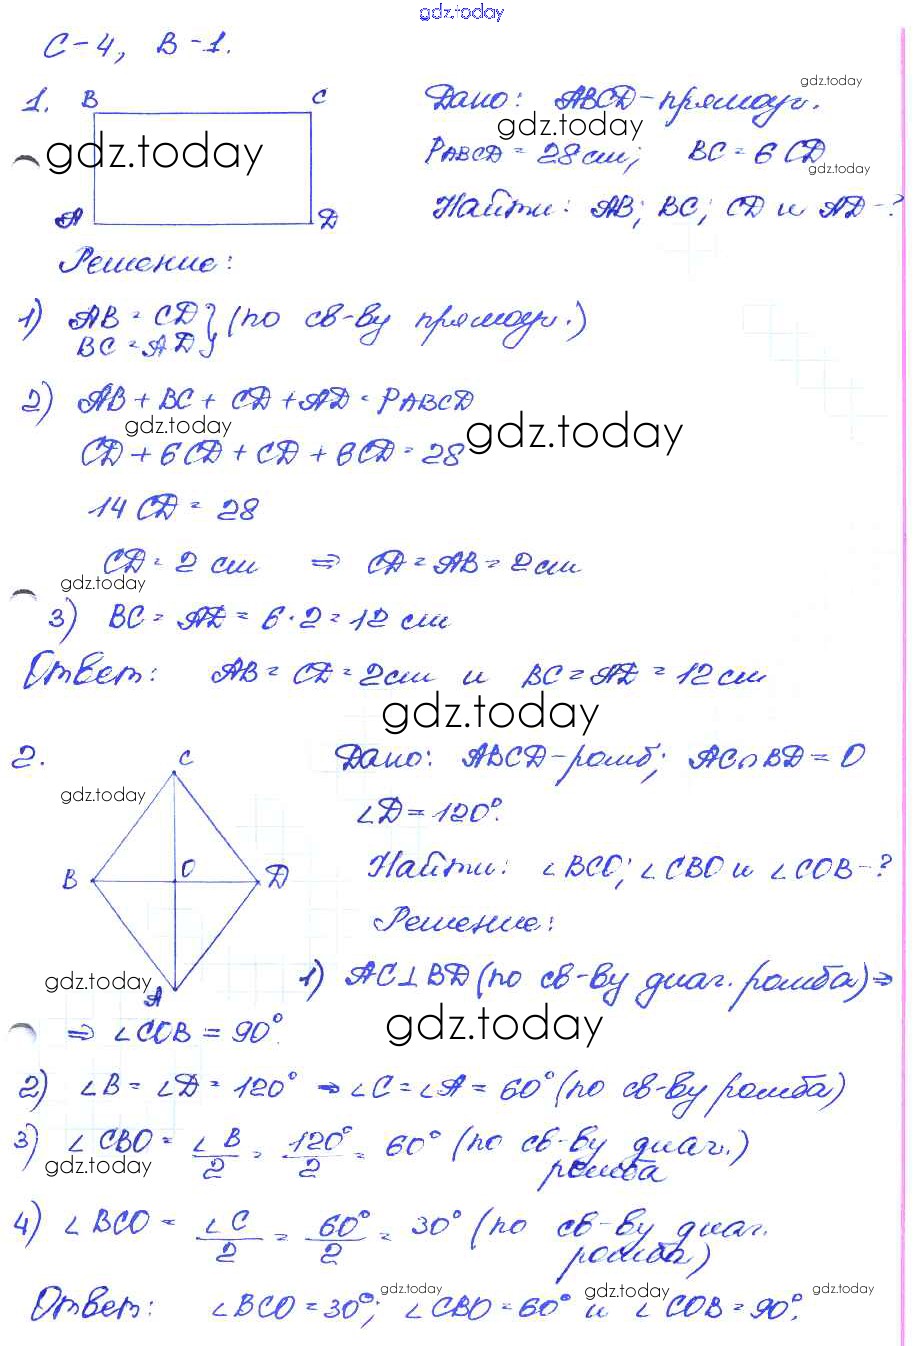 gdz.today
С-4, В-1.
1. B C
A D
Дано: ABCD-прямоуг.
gdz.today
gdz.today
gdz.today
PABCD = 28 см; BC = 6 CD
gdz.today
Найти: AB; BC; CD и AD-?
Решение:
1) AB = CD } (по св-ву прямоуг.)
BC = AD
2) AB + BC + CD + AD = PABCD
gdz.today gdz.today
CD + 6CD + CD + 6CD = 28
14 CD = 28
CD = 2 см ⇒ CD = AB = 2 см
gdz.today
3) BC = AD = 6·2 = 12 см
Ответ: AB = CD = 2см и BC = AD = 12 см
gdz.today
2. C
B O D
A
gdz.today
gdz.today
Дано: ABCD-ромб; AC∩BD = O
∠D = 120°.
Найти: ∠BCO; ∠CBO и ∠COB-?
Решение:
1) AC⊥BD (по св-ву диаг. ромба) ⇒
⇒ ∠COB = 90°.
gdz.today
2) ∠B = ∠D = 120° ⇒ ∠C = ∠A = 60° (по св-ву ромба)
3) ∠CBO = ∠B/2 = 120°/2 = 60° (по св-ву диаг.)
ромба
gdz.today
4) ∠BCO = ∠C/2 = 60°/2 = 30° (по св-ву диаг.
ромба)
gdz.today gdz.today gdz.today
Ответ: ∠BCO = 30°; ∠CBO = 60° и ∠COB = 90°.